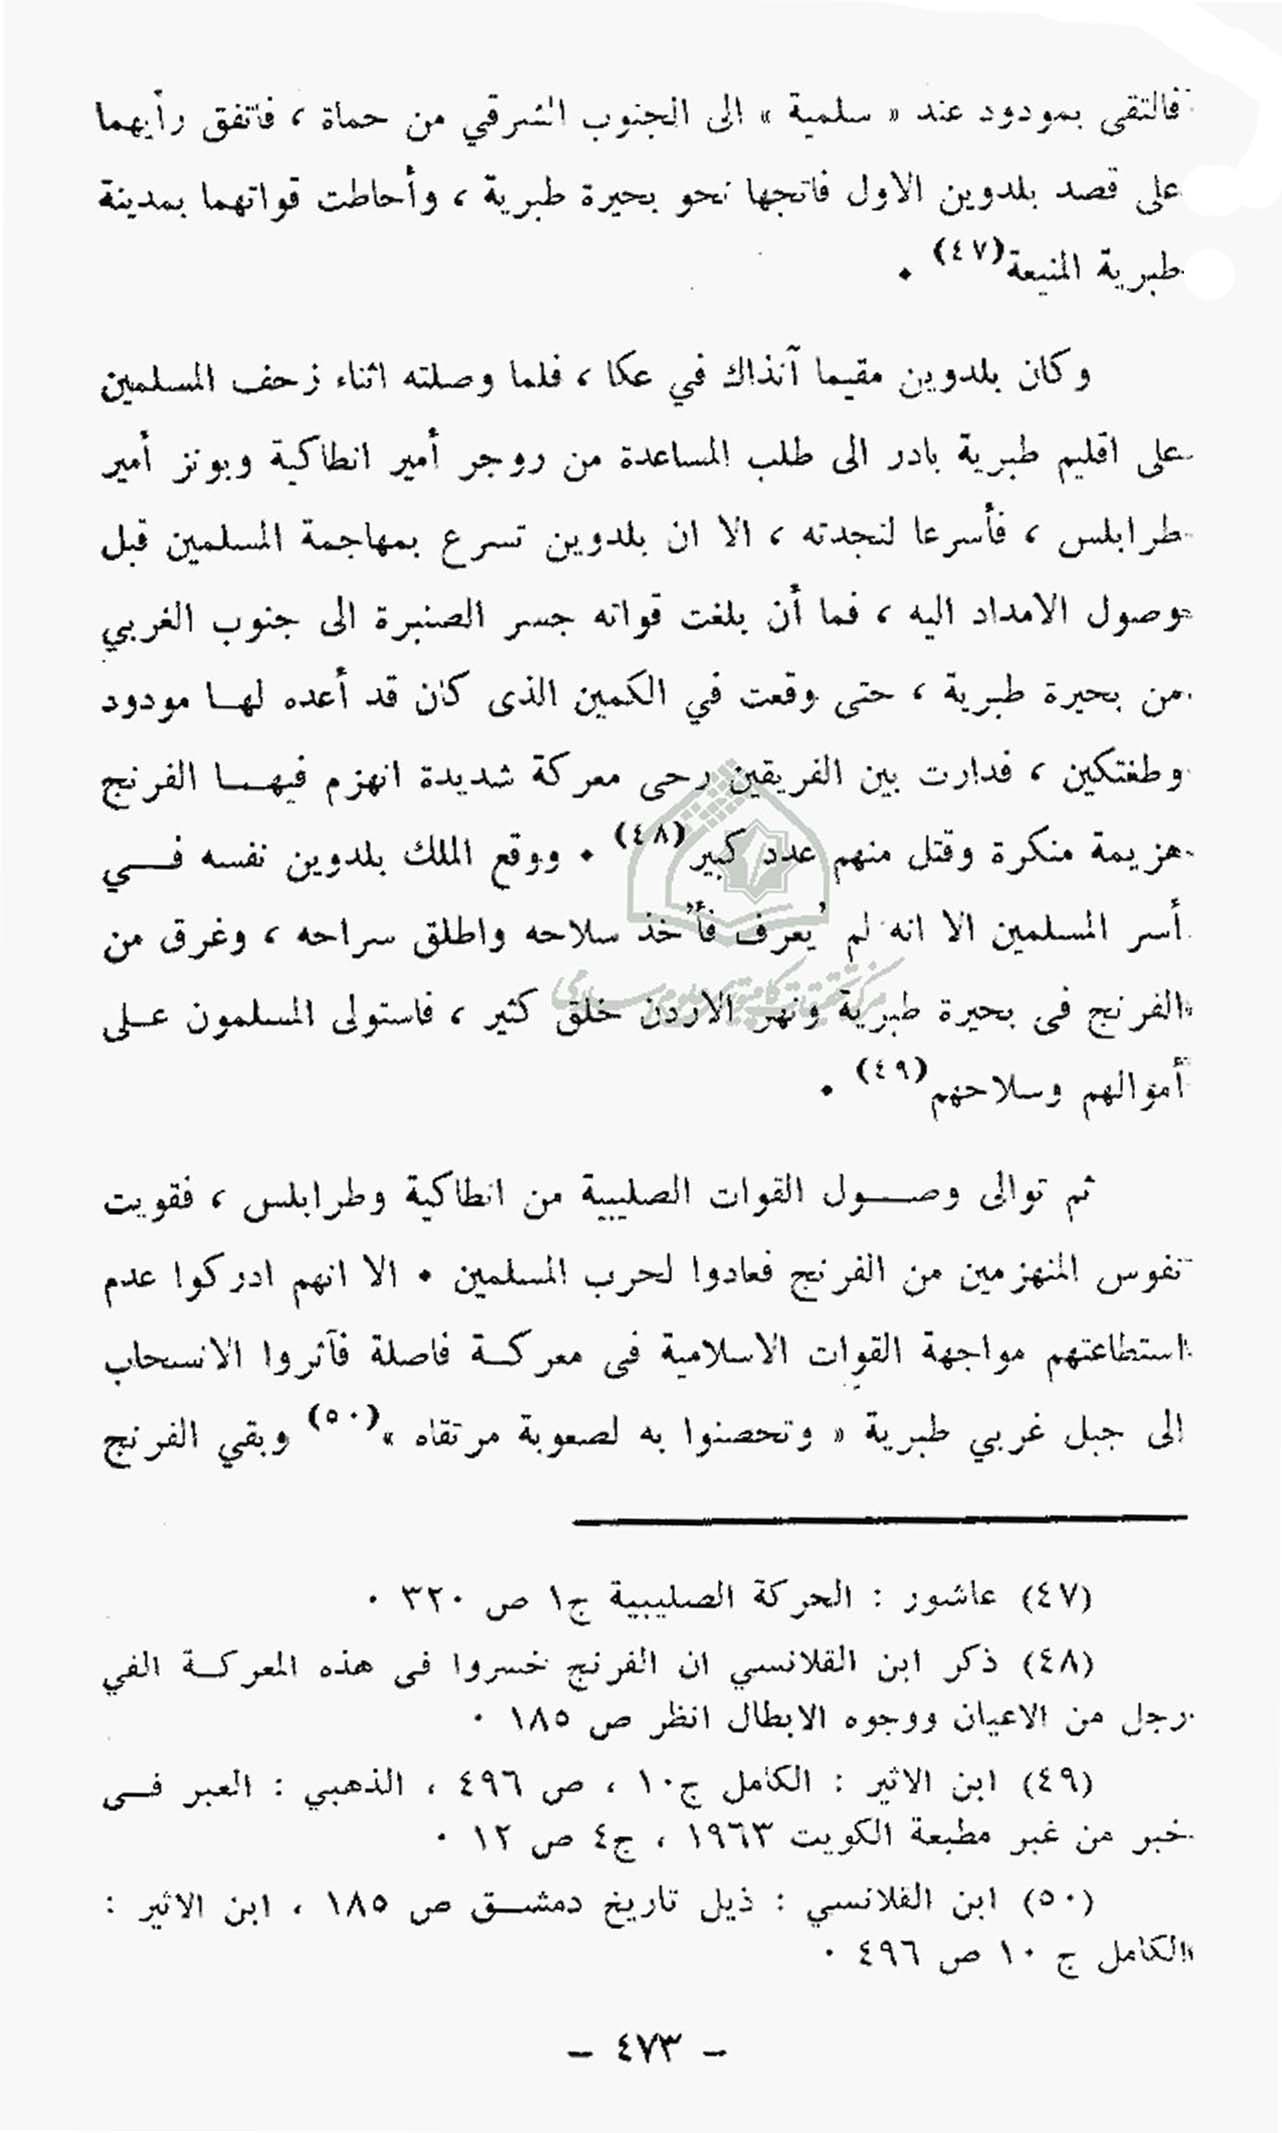 فالتقى بمودود عند « سلمية » الى الجنوب الشرقي من حماة ، فاتفق رأيهما
على قصد بلدوين الاول فاتجها نحو بحيرة طبرية ، وأحاطت قواتهما بمدينة
طبرية المنيعة(٤٧) •
وكان بلدوين مقيما آنذاك في عكا ، فلما وصلته اثناء زحف المسلمين
على اقليم طبرية بادر الى طلب المساعدة من روجر أمير انطاكية وبونز أمير
طرابلس ، فأسرعا لنجدته ، الا ان بلدوين تسرع بمهاجمة المسلمين قبل
وصول الامداد اليه ، فما أن بلغت قواته جسر الصنبرة الى جنوب الغربي
من بحيرة طبرية ، حتى وقعت في الكمين الذى كان قد أعده لهـا مودود
وطغتكين ، فدارت بين الفريقين رحى معركة شديدة انهزم فيهـا الفرنج
هزيمة منكرة وقتل منهم عدد كبير(٤٨) • ووقع الملك بلدوين نفسه فـــي
أسر المسلمين الا انه لم يُعرف فأُخذ سلاحه واطلق سراحه ، وغرق من
الفرنج فى بحيرة طبرية ونهر الاردن خلق كثير ، فاستولى المسلمون عـلى
أموالهم وسلاحهم(٤٩) •
ثم توالى وصـــول القوات الصليبية من انطاكية وطرابلس ، فقويت
نفوس المنهزمين من الفرنج فعادوا لحرب المسلمين • الا انهم ادركوا عدم
استطاعتهم مواجهة القوات الاسلامية فى معركـة فاصلة فآثروا الانسحاب
الى جبل غربي طبرية « وتحصنوا به لصعوبة مرتقاه »(٥٠) وبقي الفرنج
(٤٧) عاشور : الحركة الصليبية ج١ ص ٣٢٠ •
(٤٨) ذكر ابن القلانسي ان الفرنج خسروا فى هذه المعركـة الفي
رجل من الاعيان ووجوه الابطال انظر ص ١٨٥ •
(٤٩) ابن الاثير : الكامل ج١٠ ، ص ٤٩٦ ، الذهبي : العبر فـى
خبر من غبر مطبعة الكويت ١٩٦٣ ، ج٤ ص ١٢ •
(٥٠) ابن القلانسي : ذيل تاريخ دمشـق ص ١٨٥ ، ابن الاثير :
الكامل ج ١٠ ص ٤٩٦ •
– ٤٧٣ –
مركز تحقيقات كامپيوتری علوم اسلامی